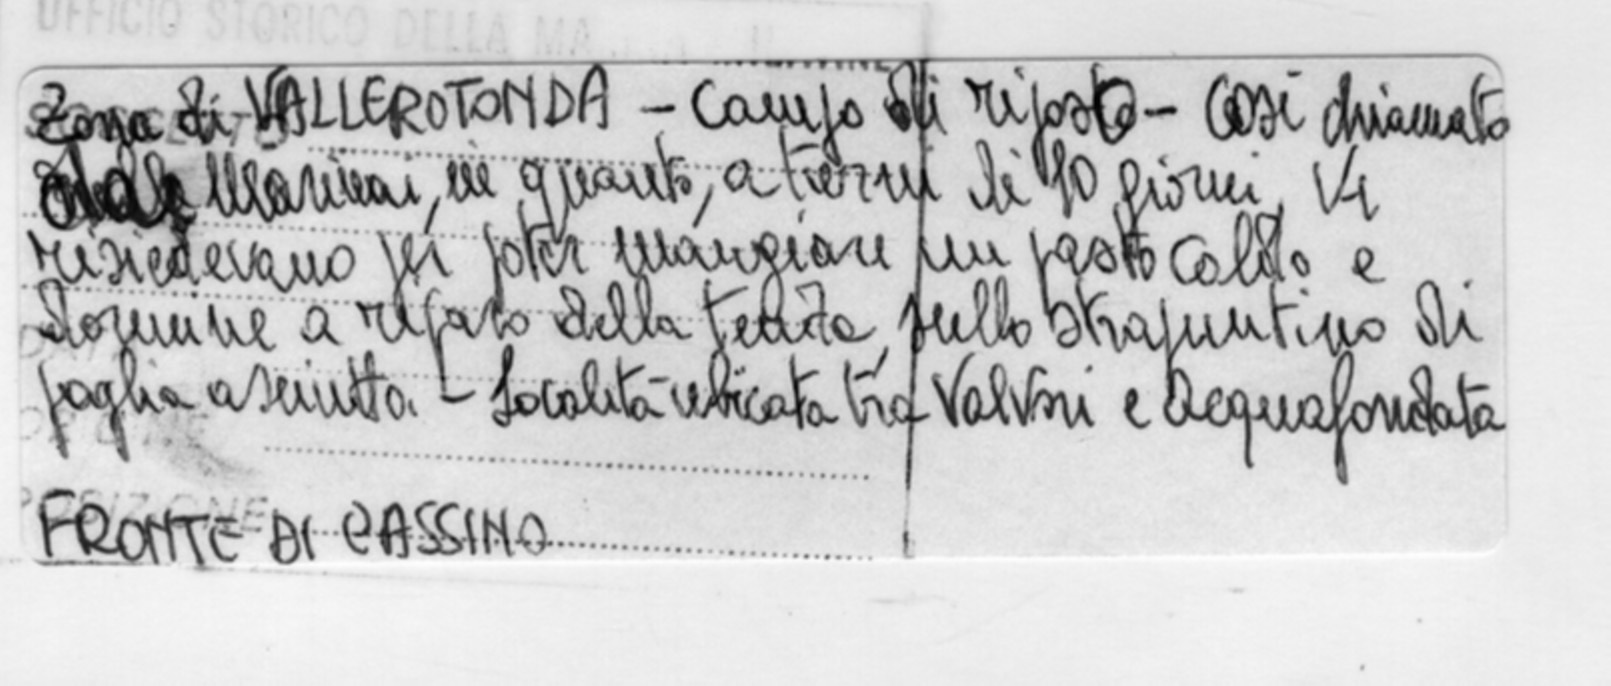 UFFICIO STORICO DELLA MA
Zona di VALLEROTONDA - Campo di riposo - Così chiamato
dai Marinai, in quanto, a turni di 10 giorni, vi
risiedevano per poter mangiare un pasto caldo e
dormire a riparo della tenda, sullo strapuntino di
paglia asciutta. - Località ubicata tra Valvori e Acquafondata
FRONTE DI CASSINO